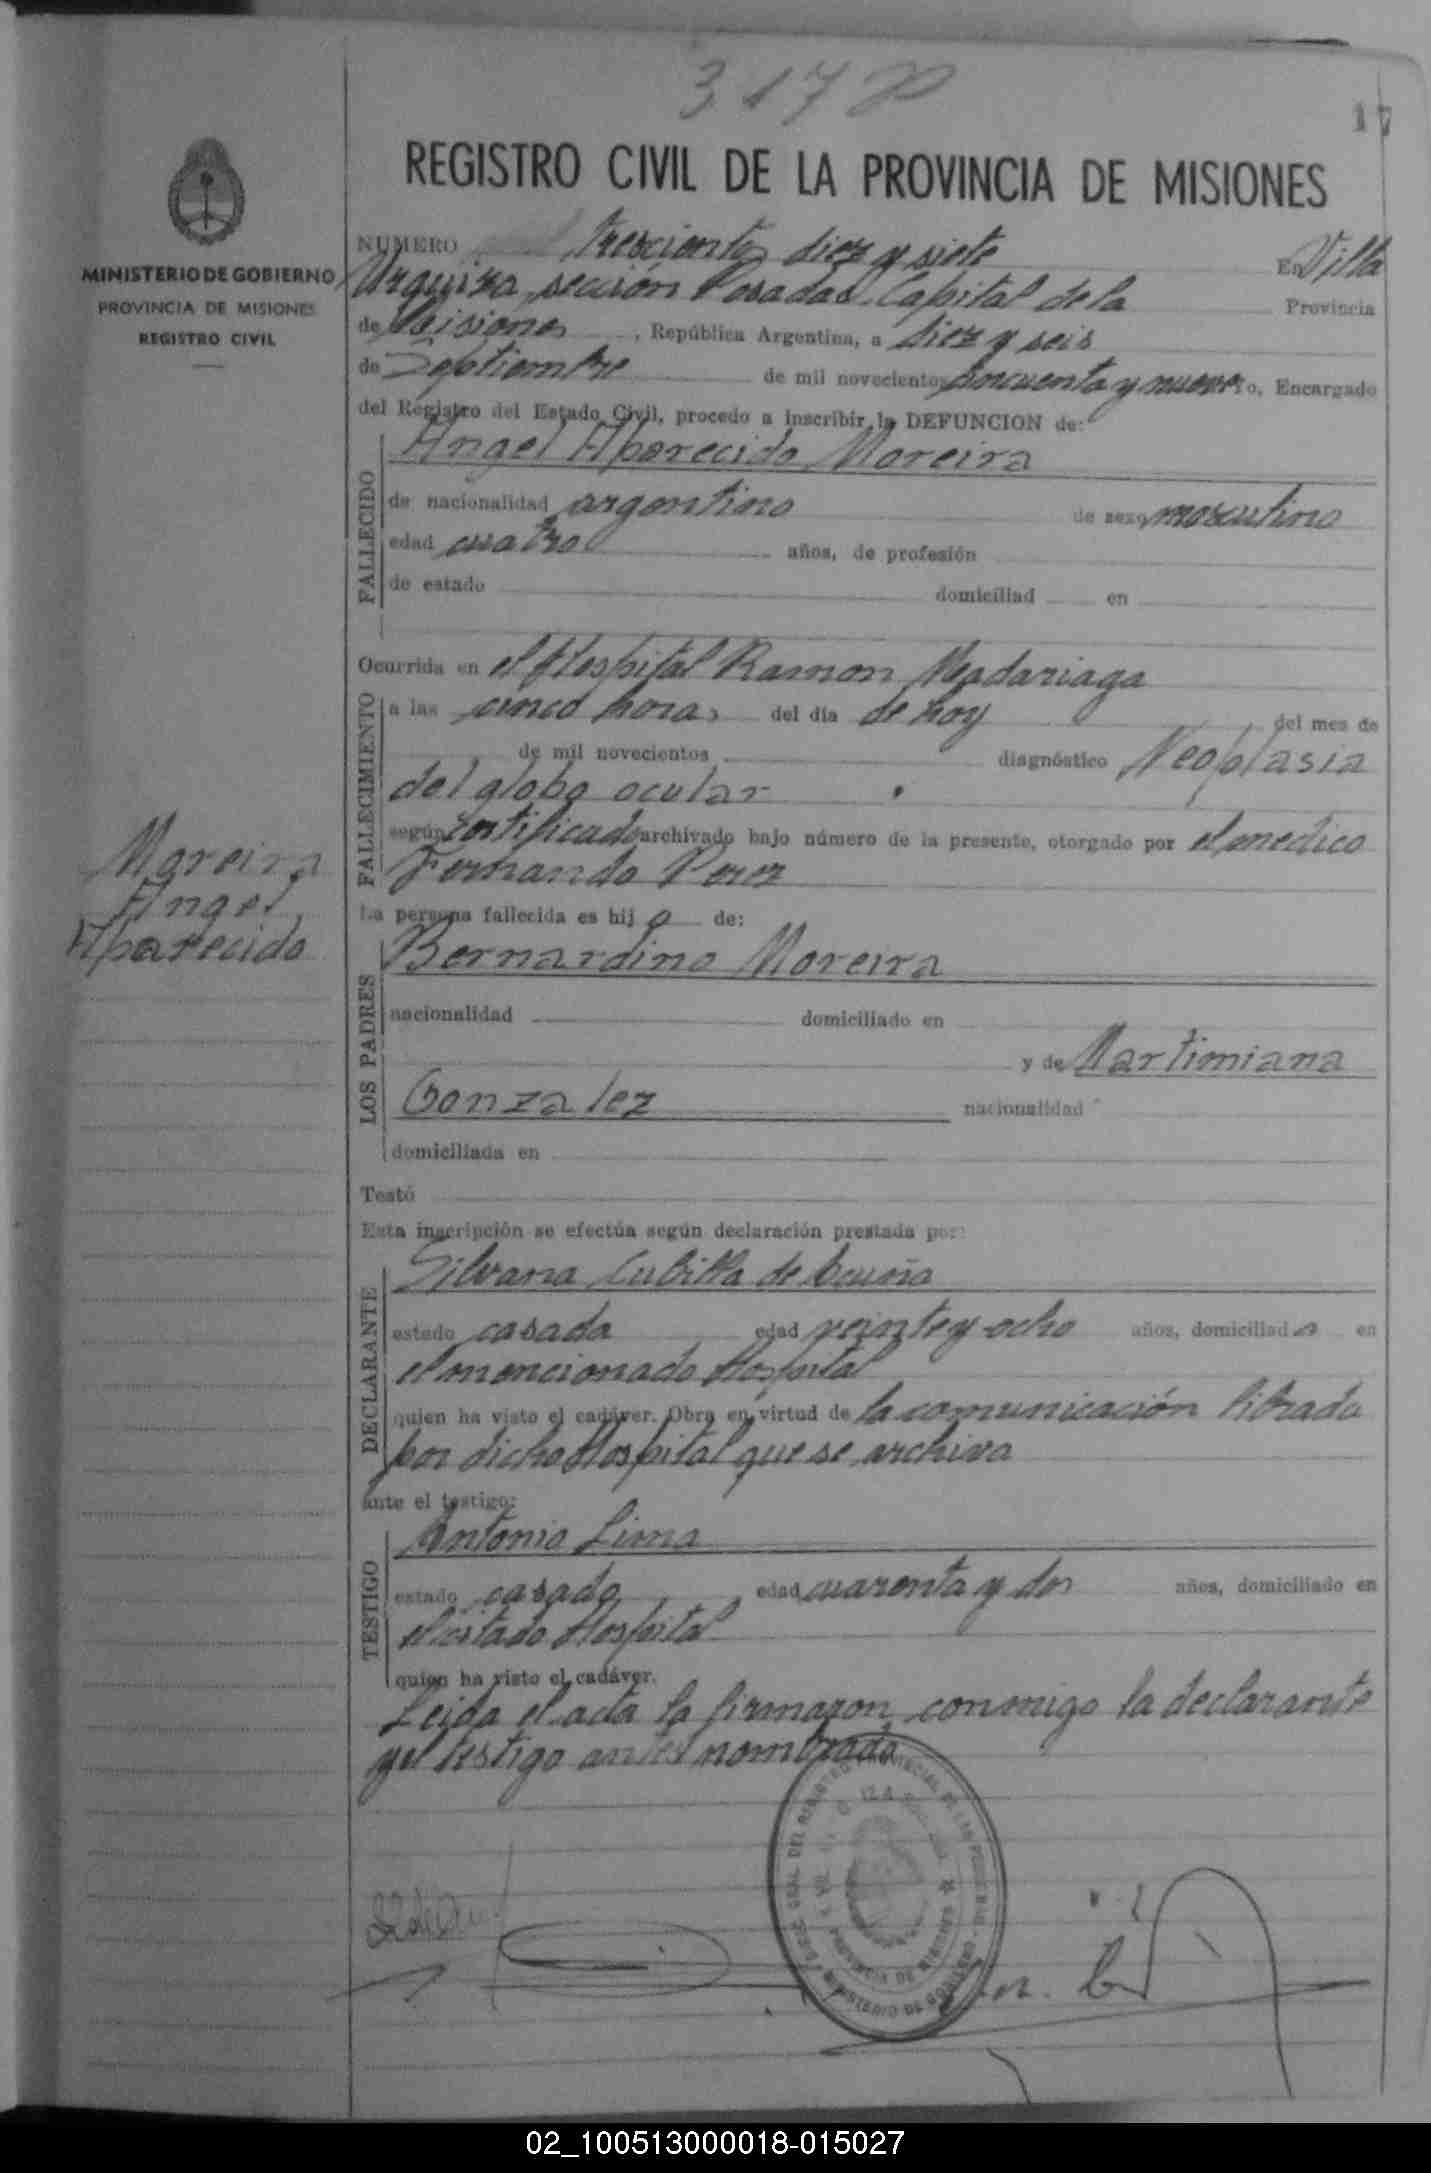 317
17
MINISTERIO DE GOBIERNO
PROVINCIA DE MISIONES
REGISTRO CIVIL
REGISTRO CIVIL DE LA PROVINCIA DE MISIONES
NUMERO trescientos diez y siete En Villa
Urquiza, sección Posadas Capital de la Provincia
de Misiones, República Argentina, a diez y seis
de Septiembre de mil novecientos cincuenta y nueve Yo, Encargado
del Registro del Estado Civil, procedo a inscribir la DEFUNCION de:
FALLECIDO
Angel Aparecido Moreira
de nacionalidad argentino de sexo masculino
edad cuatro años, de profesión
de estado domiciliad en
Ocurrida en el Hospital Ramon Madariaga
FALLECIMIENTO
a las cinco horas del día de hoy del mes de
de mil novecientos diagnóstico Neoplasia
del globo ocular
según certificado archivado bajo número de la presente, otorgado por el medico
Fernando Perez
Moreira
Angel
Aparecido
La persona fallecida es hijo de:
LOS PADRES
Bernardino Moreira
nacionalidad domiciliado en
y de Martimiana
Gonzalez nacionalidad
domiciliada en
Testó
Esta inscripción se efectúa según declaración prestada por:
DECLARANTE
Silvana Cubilla de Acuña
estado casada edad veinte y ocho años, domiciliada en
el mencionado Hospital
quien ha visto el cadáver. Obra en virtud de la comunicación librada
por dicho Hospital que se archiva
ante el testigo:
TESTIGO
Antonio Lima
estado casado edad cuarenta y dos años, domiciliado en
el citado Hospital
quien ha visto el cadáver.
Leida el acta la firmaron conmigo la declarante
y el testigo antes nombrado
PROVINCIA DE MISIONES
MINISTERIO DE GOBIERNO
02_100513000018-015027